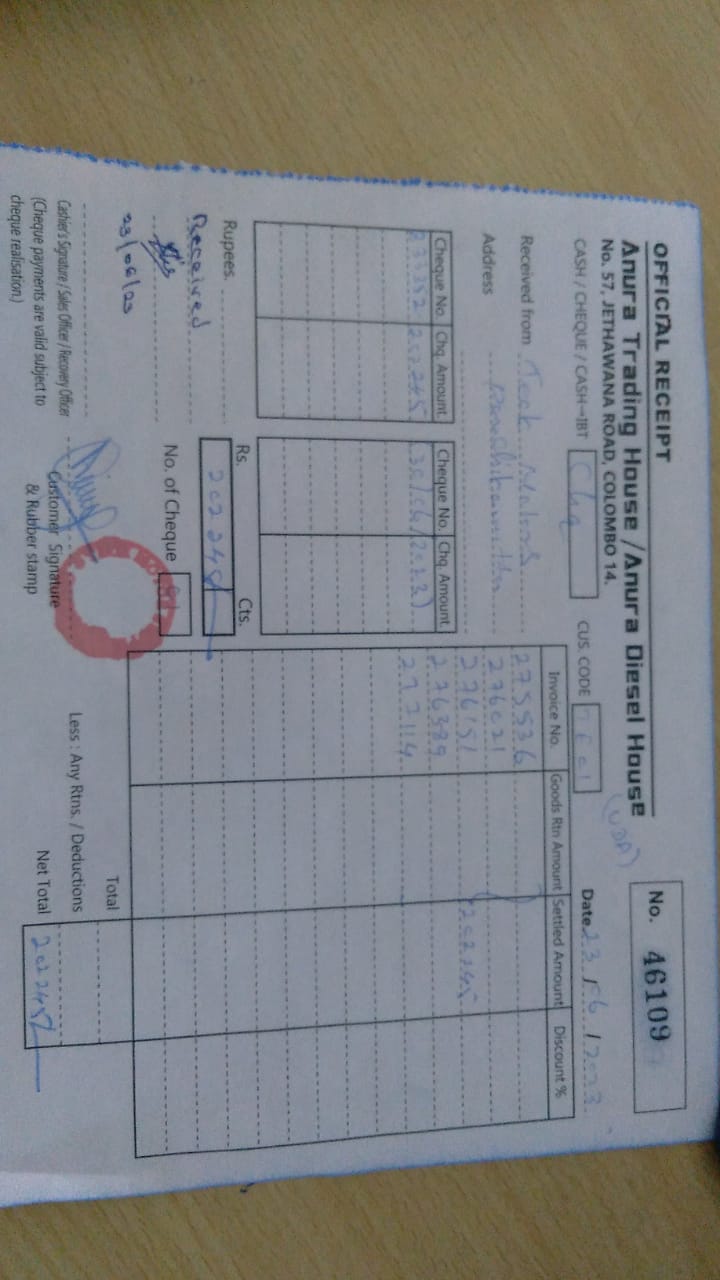 OFFICIAL RECEIPT
No. 46109
Anura Trading House / Anura Diesel House
No. 57, JETHAWANA ROAD, COLOMBO 14.
CASH / CHEQUE / CASH-IBT Chq
CUS. CODE
Date 23 / 06 / 2023
Received from
Address
Cheque No. Chq. Amount. Cheque No. Chq. Amount.
202245
Invoice No. Goods Rtn Amount Settled Amount Discount %
275536
276021
276151 202245
276389
277114
Rupees.
Rs. Cts.
202245/
Received
No. of Cheque
23/06/23
Cashier's Signature / Sales Officer / Recovery Officer
(Cheque payments are valid subject to
cheque realisation.)
Customer Signature
& Rubber stamp
Total
Less : Any Rtns. / Deductions
Net Total 202245/